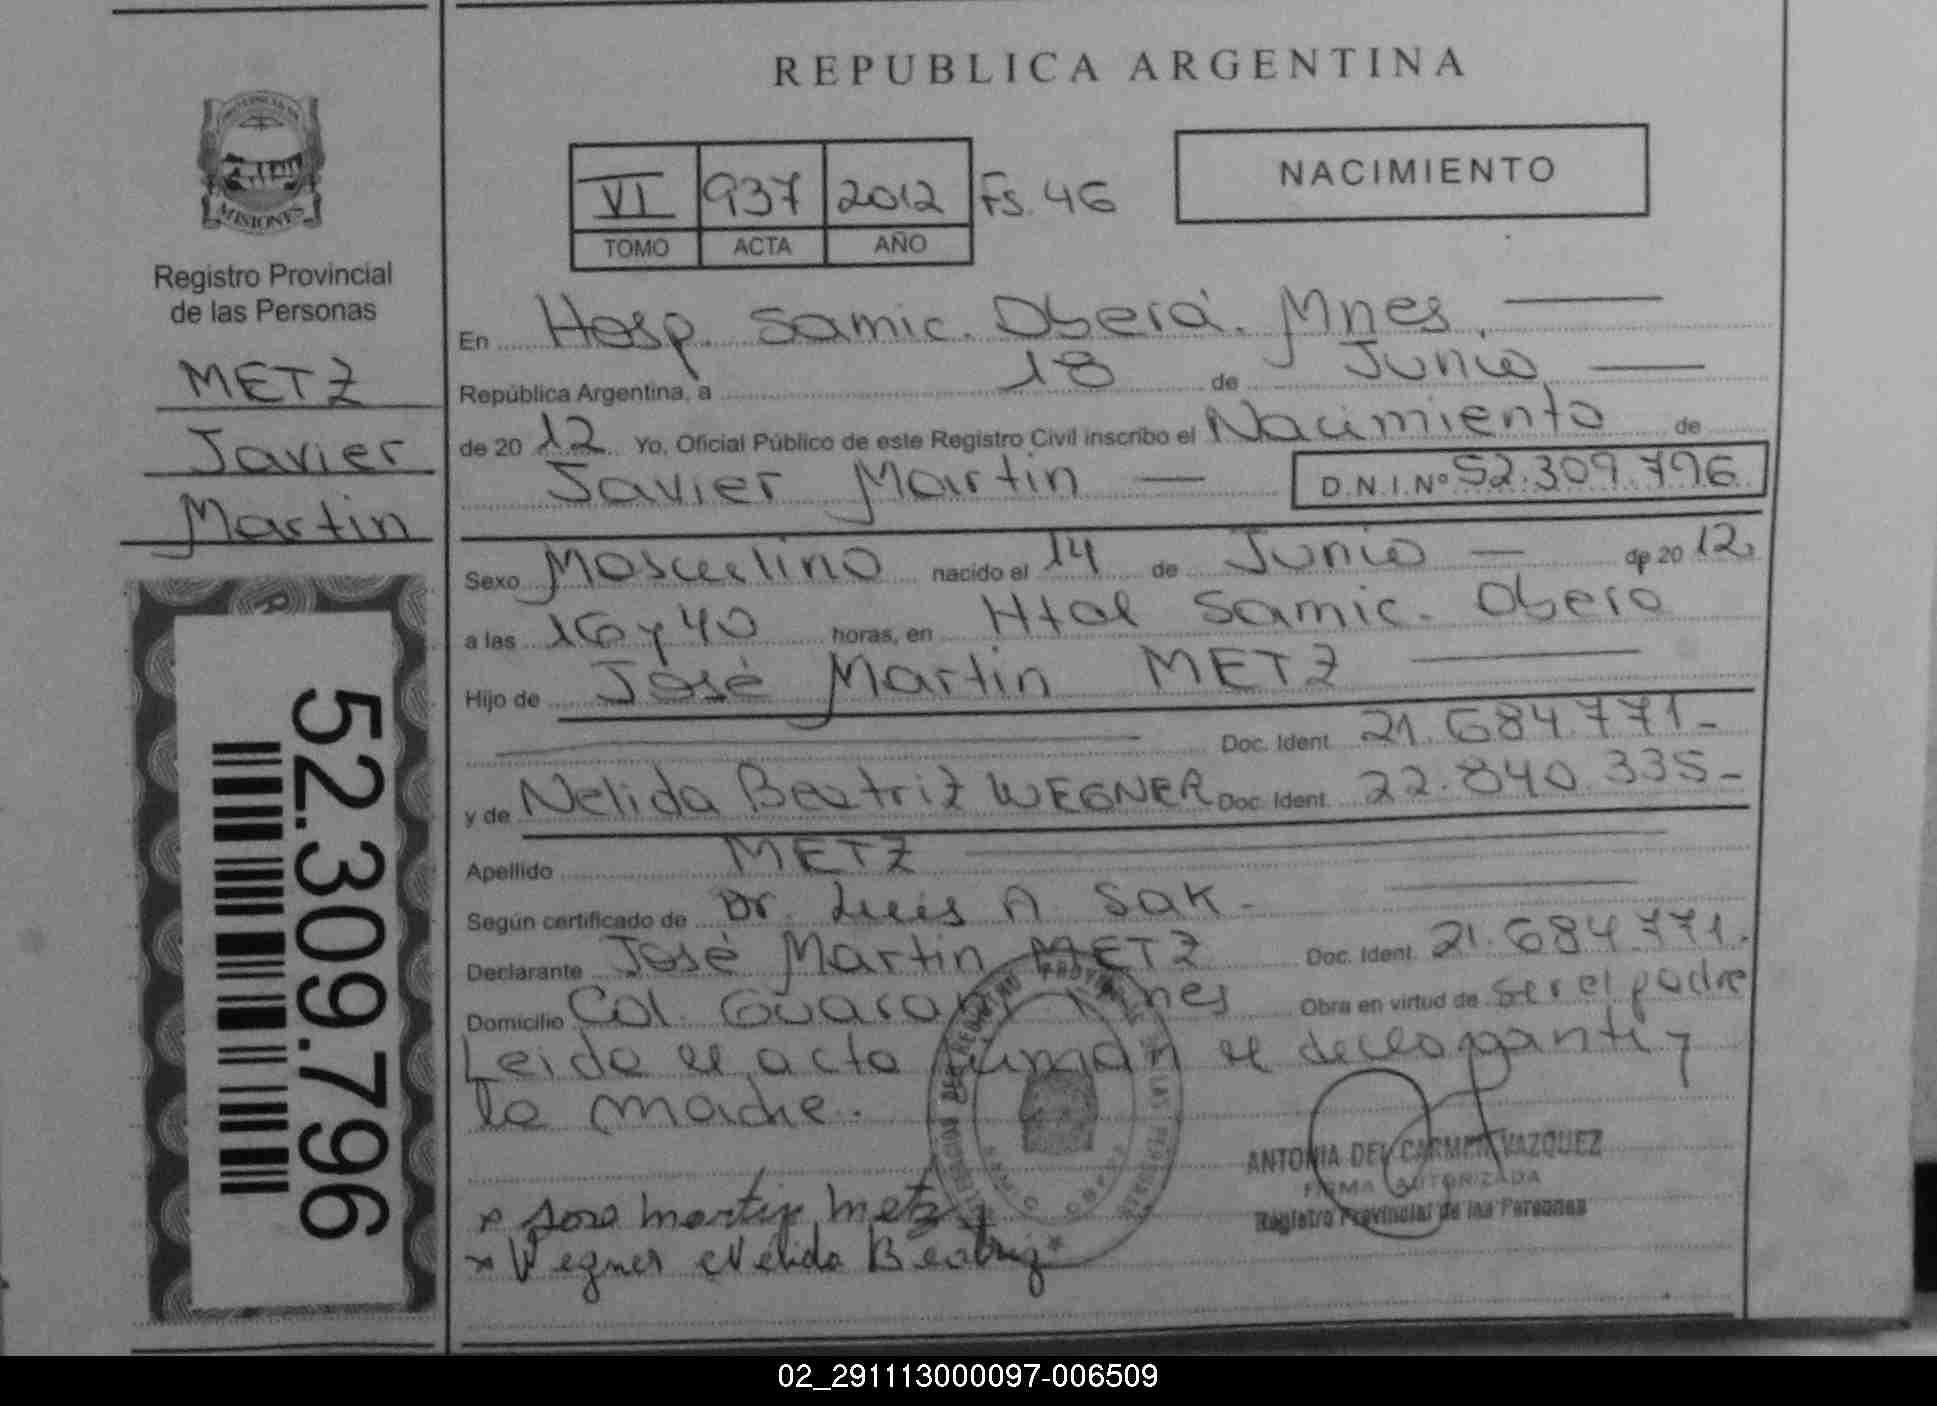 REPUBLICA ARGENTINA
PROVINCIA DE
MISIONES
Registro Provincial
de las Personas
METZ
Javier
Martin
52.309.796
VI 937 2012 Fs. 46
TOMO ACTA AÑO
NACIMIENTO
En Hosp. Samic. Oberá. Mnes.
República Argentina, a 18 de Junio
de 20 12 Yo, Oficial Público de este Registro Civil inscribo el Nacimiento de
Javier Martin — D.N.I.Nº 52.309.796
Sexo Masculino nacido el 14 de Junio — de 20 12.
a las 16 y 40 horas, en Htal Samic. Obera
Hijo de José Martin METZ
Doc. Ident. 21.684.771-
y de Nelida Beatriz WEGNER Doc. Ident. 22.840.335-
Apellido METZ
Según certificado de Dr. Luis A Sak -
Declarante José Martin METZ Doc. Ident. 21.684.771.
Domicilio Col. Guarani Mnes Obra en virtud de ser el padre
Leida el acta firman el declarante y
la madre.
ANTONIA DEL CARMEN VAZQUEZ
FIRMA AUTORIZADA
Registro Provincial de las Personas
x Jose martin metz
x Wegner Nelida Beatriz
02_291113000097-006509